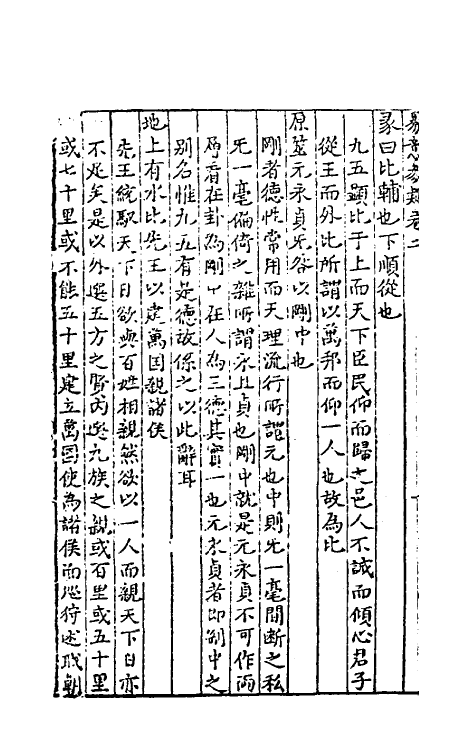 彖曰比輔也下順從也
九五顯比于上而天下臣民仰而歸之邑人不誡而傾心君子
從王而外比所謂以萬邦而仰一人也故為比
原筮元永貞无咎以剛中也
剛者德性常用而天理流行所謂元也中則无一毫間斷之私
无一毫偏倚之雜所謂永且貞也剛中就是元永貞不可作兩
看在卦為剛中在人為三德其實一也元永貞者即剛中之
別名惟九五有是德故係之以此辭耳
地上有水比先王以建萬国親諸侯
先王統馭天下日欲與百姓相親然欲以一人而親天下日亦
不足矣是以外選五方之賢內選九族之親或百里或五十里
或七十里或不能五十里建立萬國使為諸侯而巡狩述職